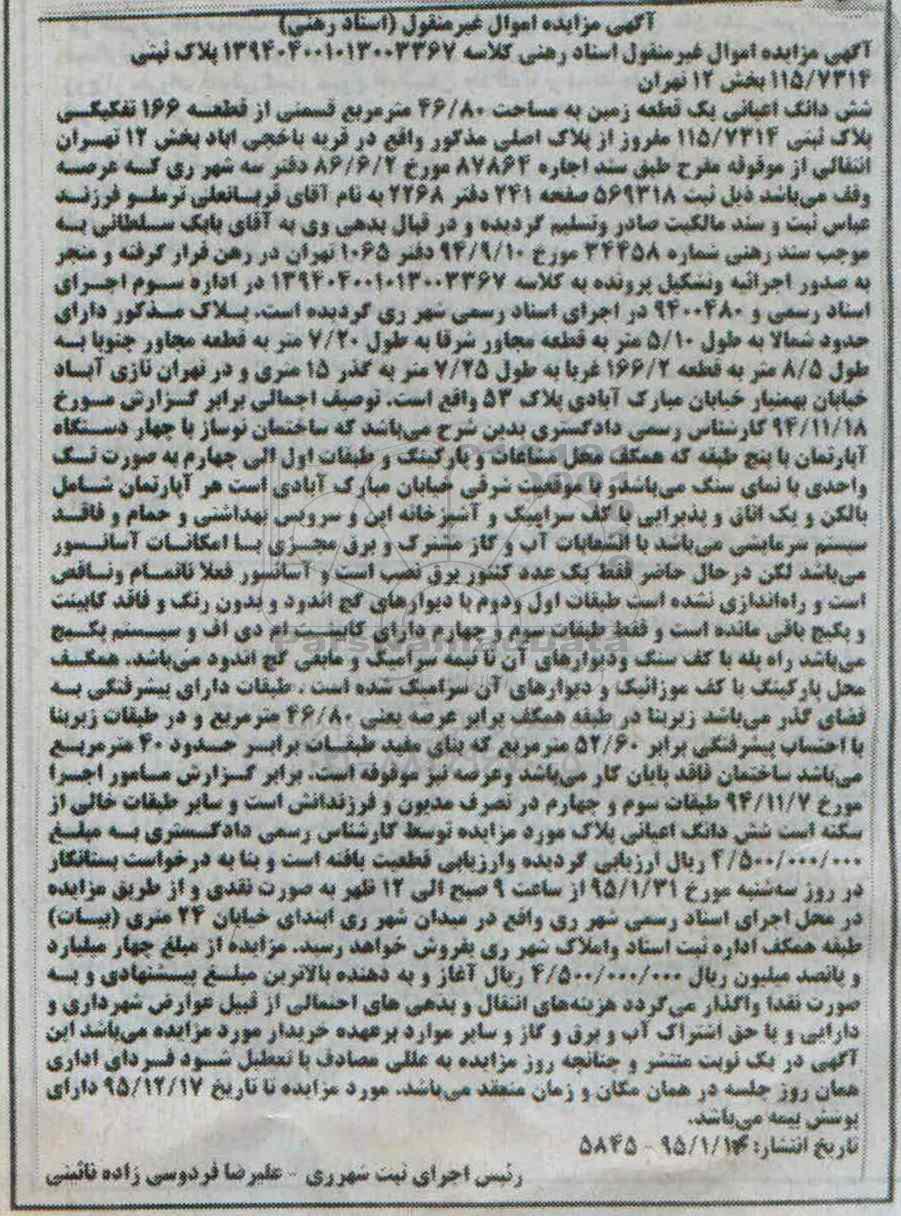 آگهی مزایده اموال غیرمنقول (اسناد رهنی)
آگهی مزایده اموال غیرمنقول اسناد رهنی کلاسه ۱۳۹۴۰۴۰۰۱۰۱۳۰۰۳۳۶۷ پلاک ثبتی
۱۱۵/۷۳۱۴ بخش ۱۲ تهران
شش دانگ اعیانی یک قطعه زمین به مساحت ۴۶/۸۰ مترمربع قسمتی از قطعه ۱۶۶ تفکیکی
پلاک ثبتی ۱۱۵/۷۳۱۴ مفروز از پلاک اصلی مذکور واقع در قریه باخچی اباد بخش ۱۲ تهران
انتقالی از موقوفه مفرح طبق سند اجاره ۸۷۸۶۴ مورخ ۸۶/۶/۲ دفتر سه شهر ری که عرصه
وقف می‌باشد ذیل ثبت ۵۶۹۳۱۸ صفحه ۲۴۱ دفتر ۲۲۶۸ به نام آقای قربانعلی ترملو فرزند
عباس ثبت و سند مالکیت صادر وتسلیم گردیده و در قبال بدهی وی به آقای بابک سلطانی به
موجب سند رهنی شماره ۳۴۴۵۸ مورخ ۹۴/۹/۱۰ دفتر ۱۰۶۵ تهران در رهن قرار گرفته و منجر
به صدور اجرائیه وتشکیل پرونده به کلاسه ۱۳۹۴۰۴۰۰۱۰۱۳۰۰۳۳۶۷ در اداره سوم اجرای
اسناد رسمی و ۹۴۰۰۴۸۰ در اجرای اسناد رسمی شهر ری گردیده است. پلاک مذکور دارای
حدود شمالا به طول ۵/۱۰ متر به قطعه مجاور شرقا به طول ۷/۲۰ متر به قطعه مجاور جنوبا به
طول ۸/۵ متر به قطعه ۱۶۶/۲ غربا به طول ۷/۲۵ متر به گذر ۱۵ متری و در تهران نازی آباد
خیابان بهمنیار خیابان مبارک آبادی پلاک ۵۳ واقع است. توصیف اجمالی برابر گزارش مورخ
۹۴/۱۱/۱۸ کارشناس رسمی دادگستری بدین شرح می‌باشد که ساختمان نوساز با چهار دستگاه
آپارتمان با پنج طبقه که همکف محل مشاعات و پارکینگ و طبقات اول الی چهارم به صورت تک
واحدی با نمای سنگ می‌باشدو با موقعیت شرقی خیابان مبارک آبادی است هر آپارتمان شامل
بالکن و یک اتاق و پذیرایی با کف سرامیک و آشپزخانه اپن و سرویس بهداشتی و حمام و فاقد
سیستم سرمایشی می‌باشد با انشعابات آب و گاز مشترک و برق مجزی با امکانات آسانسور
می‌باشد لکن درحال حاضر فقط یک عدد کنتور برق نصب است و آسانسور فعلا ناتمام وناقص
است و راه‌اندازی نشده است طبقات اول ودوم با دیوارهای گچ اندود و بدون رنگ و فاقد کابینت
و پکیج باقی مانده است و فقط طبقات سوم و چهارم دارای کابینت ام دی اف و سیستم پکیج
می‌باشد راه پله با کف سنگ ودیوارهای آن تا نیمه سرامیک و مابقی گچ اندود می‌باشد. همکف
محل پارکینگ با کف موزائیک و دیوارهای آن سرامیک شده است . طبقات دارای پیشرفتگی به
فضای گذر می‌باشد زیربنا در طبقه همکف برابر عرصه یعنی ۴۶/۸۰ مترمربع و در طبقات زیربنا
با احتساب پیشرفتگی برابر ۵۲/۶۰ مترمربع که بنای مفید طبقات برابر حدود ۴۰ مترمربع
می‌باشد ساختمان فاقد پایان کار می‌باشد وعرصه نیز موقوفه است. برابر گزارش مامور اجرا
مورخ ۹۴/۱۱/۷ طبقات سوم و چهارم در تصرف مدیون و فرزندانش است و سایر طبقات خالی از
سکنه است شش دانگ اعیانی پلاک مورد مزایده توسط کارشناس رسمی دادگستری به مبلغ
۴/۵۰۰/۰۰۰/۰۰۰ ریال ارزیابی گردیده وارزیابی قطعیت یافته است و بنا به درخواست بستانکار
در روز سه‌شنبه مورخ ۹۵/۱/۳۱ از ساعت ۹ صبح الی ۱۲ ظهر به صورت نقدی و از طریق مزایده
در محل اجرای اسناد رسمی شهر ری واقع در میدان شهر ری ابتدای خیابان ۲۴ متری (بیات)
طبقه همکف اداره ثبت اسناد واملاک شهر ری بفروش خواهد رسید. مزایده از مبلغ چهار میلیارد
و پانصد میلیون ریال ۴/۵۰۰/۰۰۰/۰۰۰ ریال آغاز و به دهنده بالاترین مبلغ پیشنهادی و به
صورت نقدا واگذار می‌گردد هزینه‌های انتقال و بدهی های احتمالی از قبیل عوارض شهرداری و
دارایی و یا حق اشتراک آب و برق و گاز و سایر موارد برعهده خریدار مورد مزایده می‌باشد این
آگهی در یک نوبت منتشر و چنانچه روز مزایده به عللی مصادف با تعطیل شود فردای اداری
همان روز جلسه در همان مکان و زمان منعقد می‌باشد. مورد مزایده تا تاریخ ۹۵/۱۲/۱۷ دارای
پوشش بیمه می‌باشد.
تاریخ انتشار: ۹۵/۱/۱۴ - ۵۸۴۵
رئیس اجرای ثبت شهرری - علیرضا فردوسی زاده نائینی